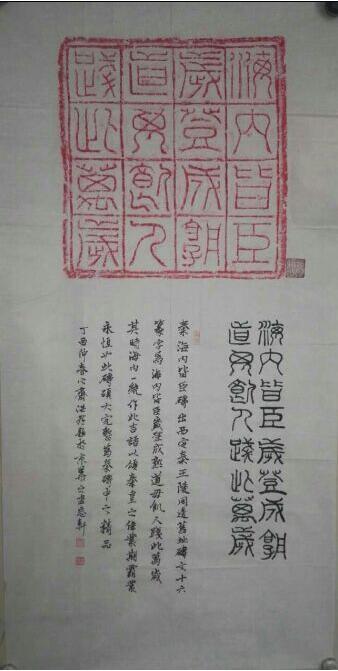 海内皆臣
歲登成孰
道毋飢人
踐此萬歲
海内皆臣歲登成孰
道毋飢人踐此萬歲
秦海内皆臣磚出西安秦王陵周邊舊址磚文十六
篆字爲海内皆臣歲登成熟道毋飢人踐此萬歲
其時海内一統作此吉語以頌秦皇之偉業期霸業
永恒如此磚碩大完整爲秦磚中之精品
丁酉仲春心齋洪題於京華之軒